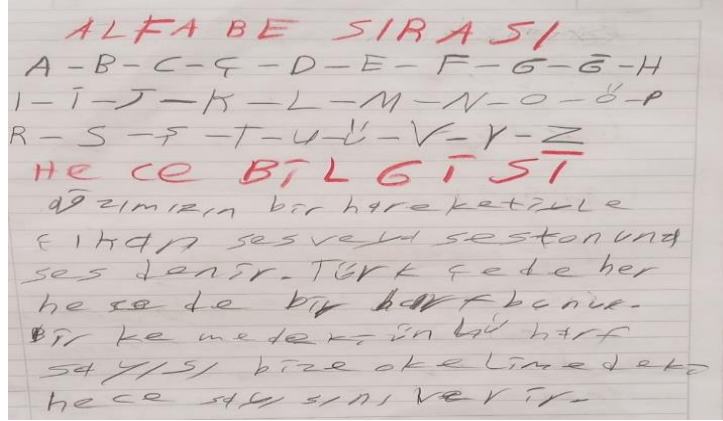 ALFABE SIRASI
A-B-C-Ç-D-E-F-G-Ğ-H
I-İ-J-K-L-M-N-O-Ö-P
R-S-Ş-T-U-Ü-V-Y-Z
HECE BİLGİSİ
ağzımızın bir hareketiyle
çıkan ses veya ses tonuna
ses denir. Türkçede her
hecede bir harf
Bir ke medeki ünlü harf
sayısı bize o kelimedeki
hece sayısını verir.